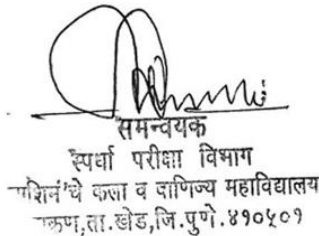 समन्वयक
स्पर्धा परीक्षा विभाग
कला व वाणिज्य महाविद्यालय
ता.खेड,जि.पुणे.४१०५०१